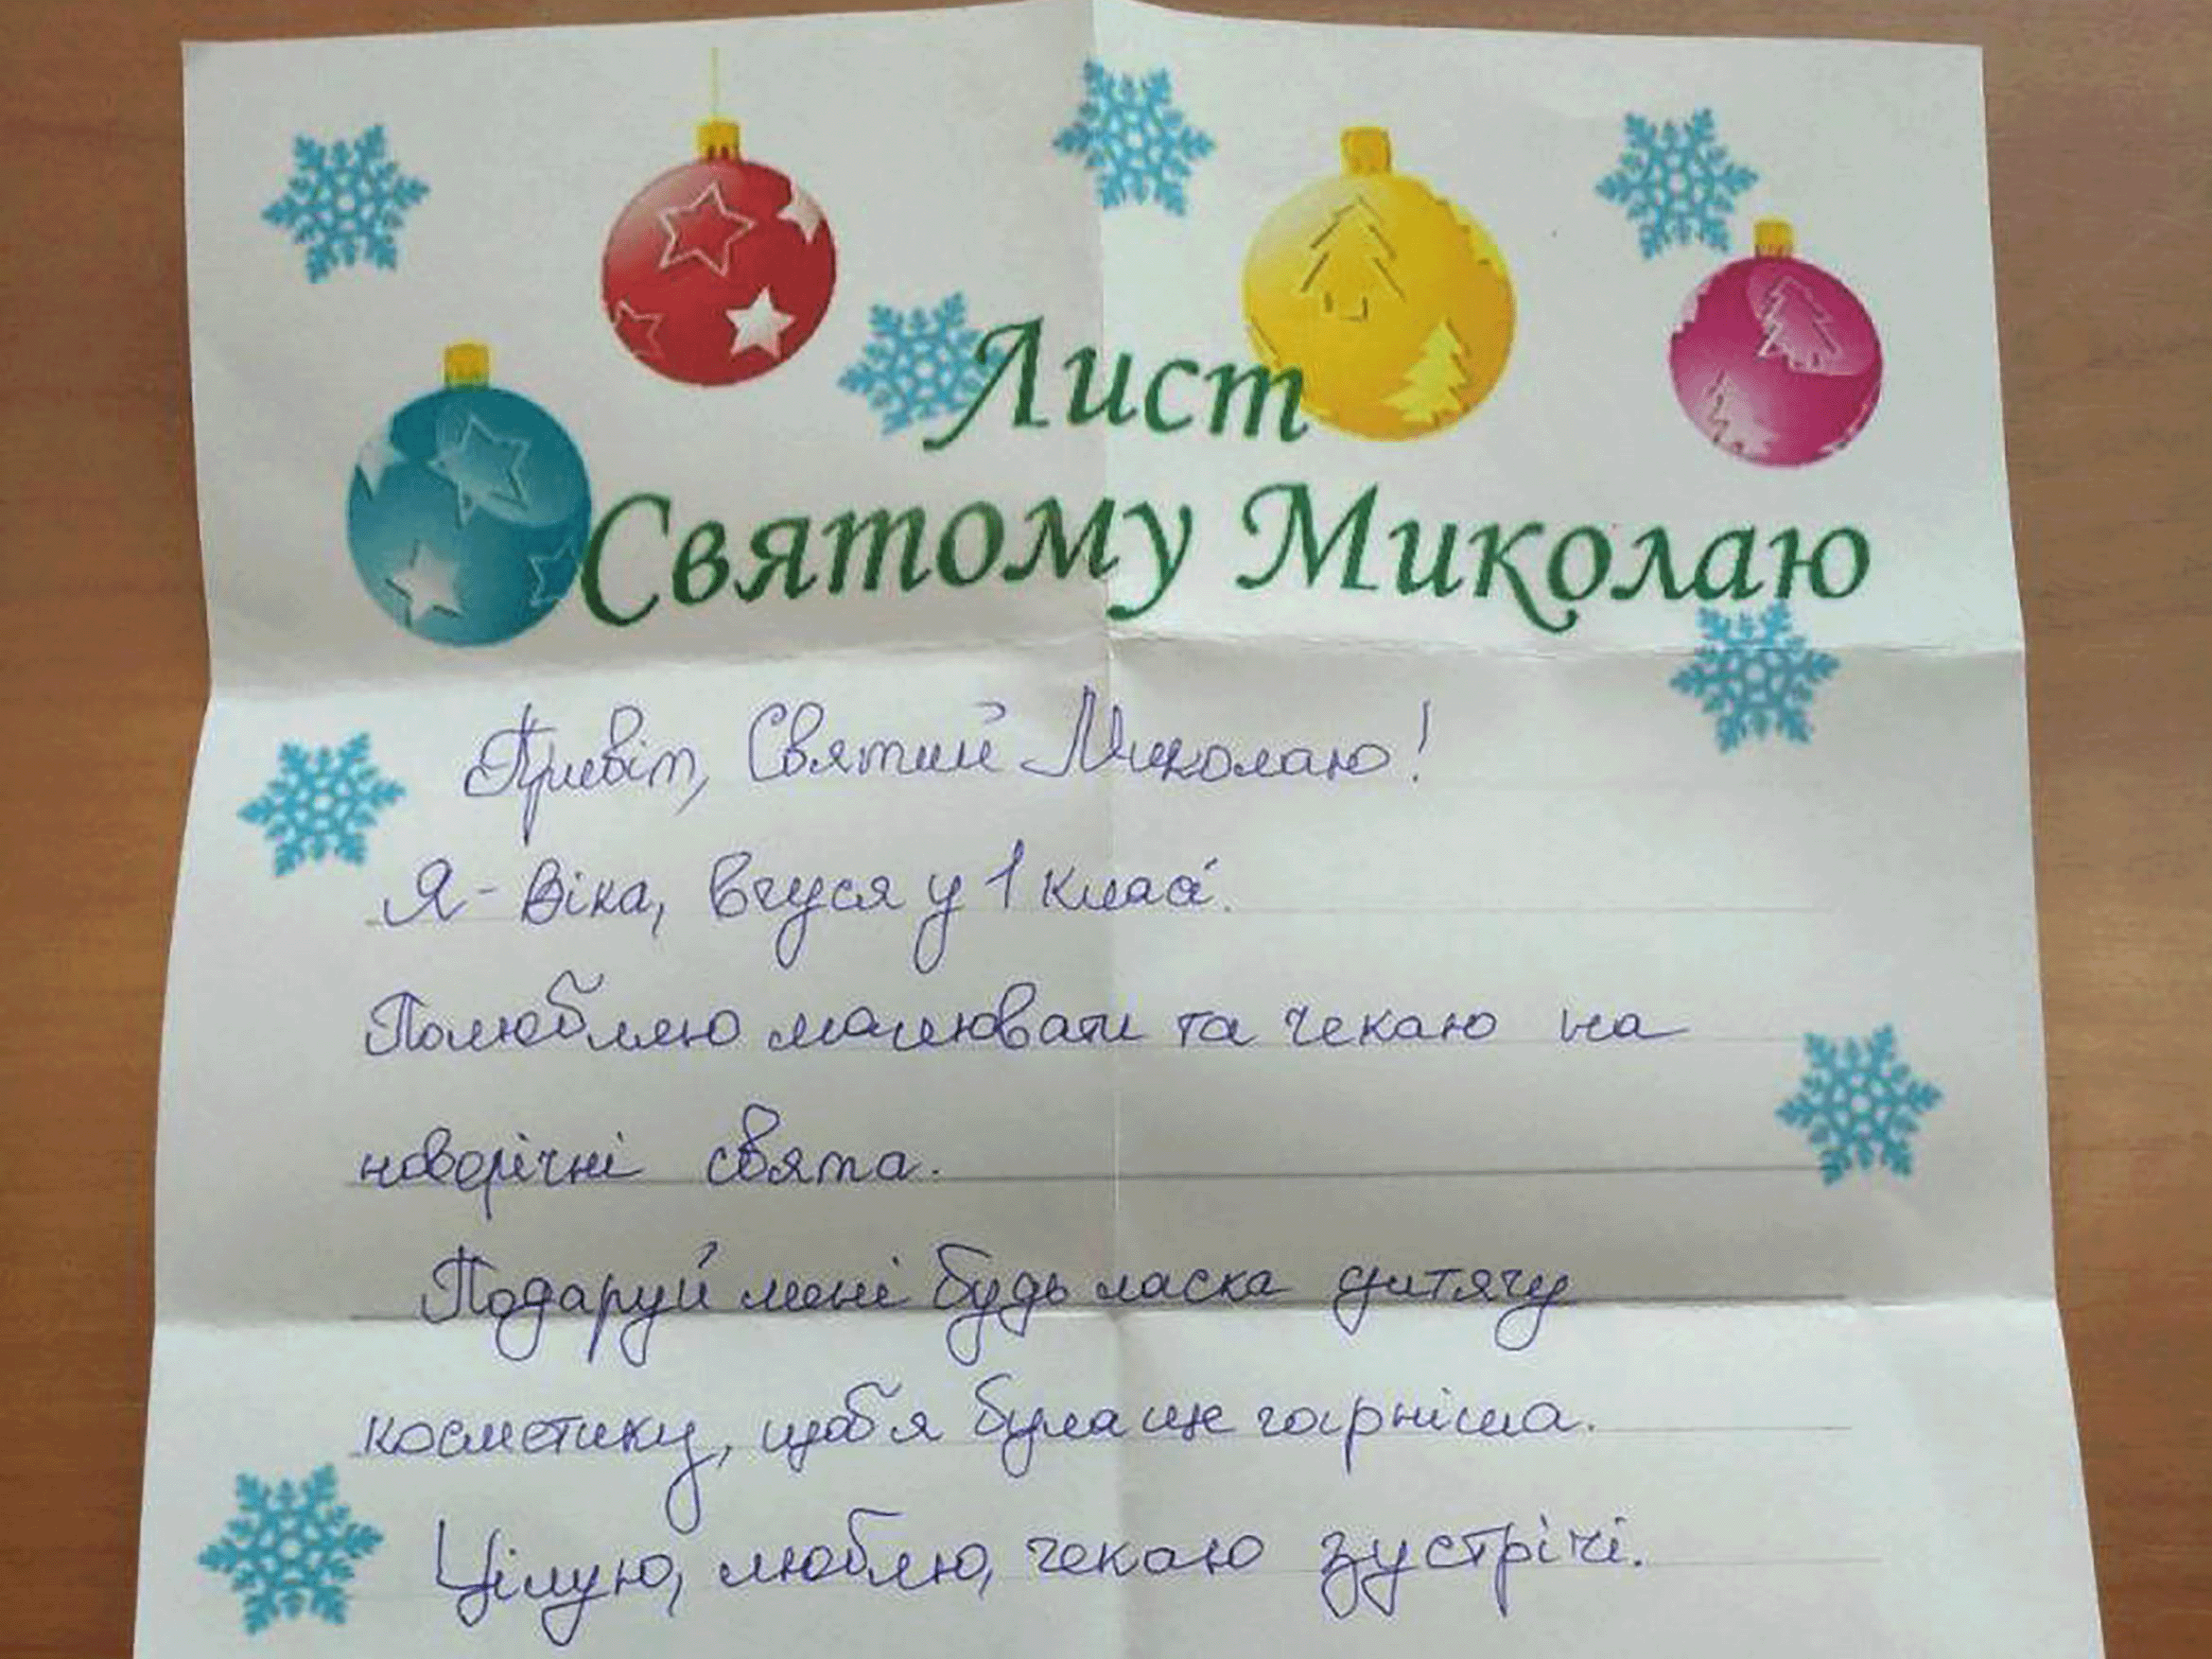 Лист
Святому Миколаю
Привіт, Святий Миколаю!
Я - Віка, вчуся у 1 класі.
Полюбляю малювати та чекаю на
новорічні свята.
Подаруй мені будь ласка дитячу
косметику, щоб я була ще гарніша.
Цілую, люблю, чекаю зустрічі.